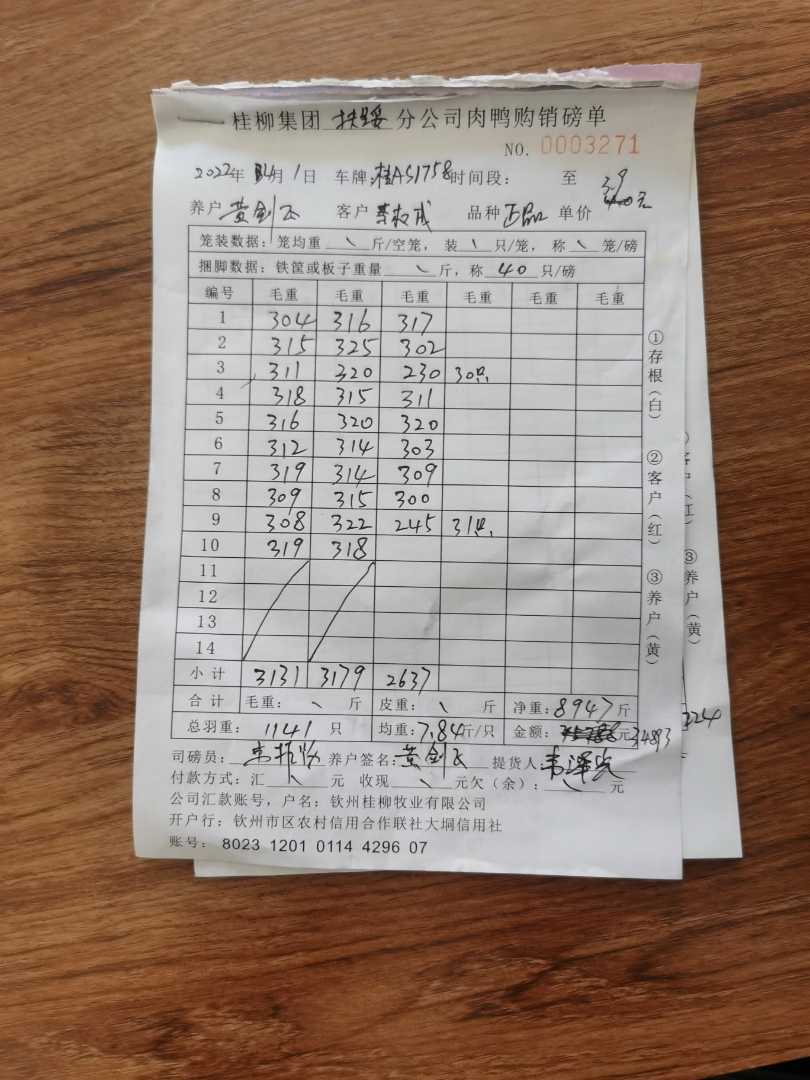 桂柳集团 扶绥 分公司肉鸭购销磅单
NO. 0003271
2022年 月 1 日 车牌:桂AS1758 时间段: 至 3.9元
养户 黄剑飞 客户 品种 正品 单价
笼装数据: 笼均重 \ 斤/空笼, 装 \ 只/笼, 称 \ 笼/磅
捆脚数据: 铁筐或板子重量 \ 斤, 称 40 只/磅
编号 毛重 毛重 毛重 毛重 毛重 毛重
1 304 316 317
2 315 325 302
3 311 320 230 30只
4 318 315 311
5 316 320 320
6 312 314 303
7 319 314 309
8 309 315 300
9 308 322 245 31只
10 319 318
11
12
13
14
小计 3131 3179 2637
合计 毛重: \ 斤 皮重: \ 斤 净重: 8947 斤
总羽重: 1141 只 均重: 7.84 斤/只 金额: 元 34893
司磅员: 养户签名: 黄剑飞 提货人:
付款方式: 汇 \ 元 收现 \ 元欠(余): \ 元
公司汇款账号, 户名: 钦州桂柳牧业有限公司
开户行: 钦州市区农村信用合作联社大垌信用社
账号: 8023 1201 0114 4296 07
①存根(白) ②客户(红) ③养户(黄)
③养户(黄)
224